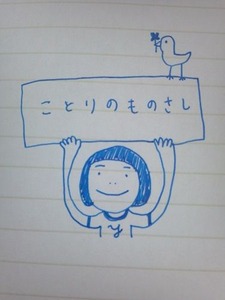 ことりのものさし
y